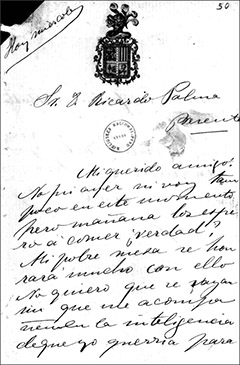 50
Hoy miércoles
Sr. D. Ricardo Palma
presente
BIBLIOTECA NACIONAL
Mi querido amigo:
No fui ayer ni voy tam
poco en este momento
pero mañana los espe
ro á comer ¿verdad?
Mi pobre mesa se hon
rará mucho con ello
No quiero que se vayan
sin que me acompa
ñen en la inteligencia
de que yo querria para